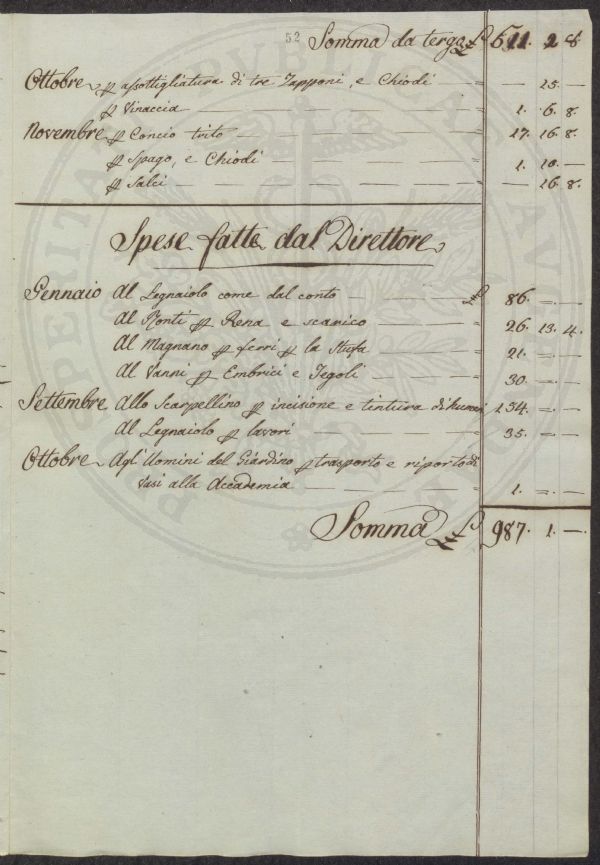 52
Somma da tergo £ 511. 2. 8
Ottobre p assottigliatura di tre Zapponi, e Chiodi — — 15. —
p Vinaccia — 1. 6. 8.
Novembre p Concio trito — 17. 16. 8.
p Spago, e Chiodi — 1. 10. —
p Salci — — 16. 8.
Spese fatte dal Direttore
Gennaio Al Legnaiolo come dal conto — £ 86. =. —
Al Monti p Rena e scarico — 26. 13. 4.
Al Magnano p ferri p la Stufa — 21. =. —
Al Vanni p Embrici e Tegoli — 30. =. —
Settembre Allo Scarpellino p incisione e tintura di numeri 254. =. —
Al Legnaiolo p lavori — 35. =. —
Ottobre Agl'Uomini del Giardino p trasporto e riporto di
Vasi alla Accademia — 1. =. —
Somma £ 987. 1. —